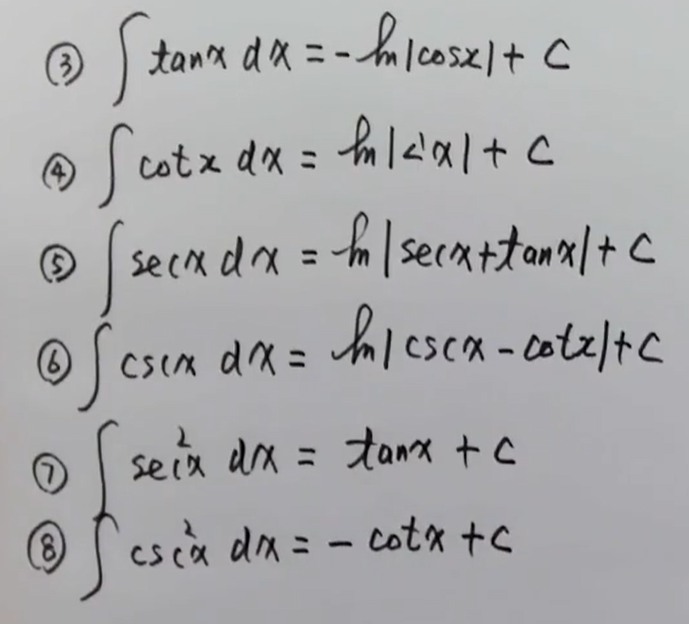 ③ ∫ tanx dx = -ln|cosx| + C
④ ∫ cotx dx = ln| x| + C
⑤ ∫ secx dx = ln|secx+tanx| + C
⑥ ∫ cscx dx = ln|cscx - cotx| + C
⑦ ∫ sec²x dx = tanx + C
⑧ ∫ csc²x dx = - cotx + C